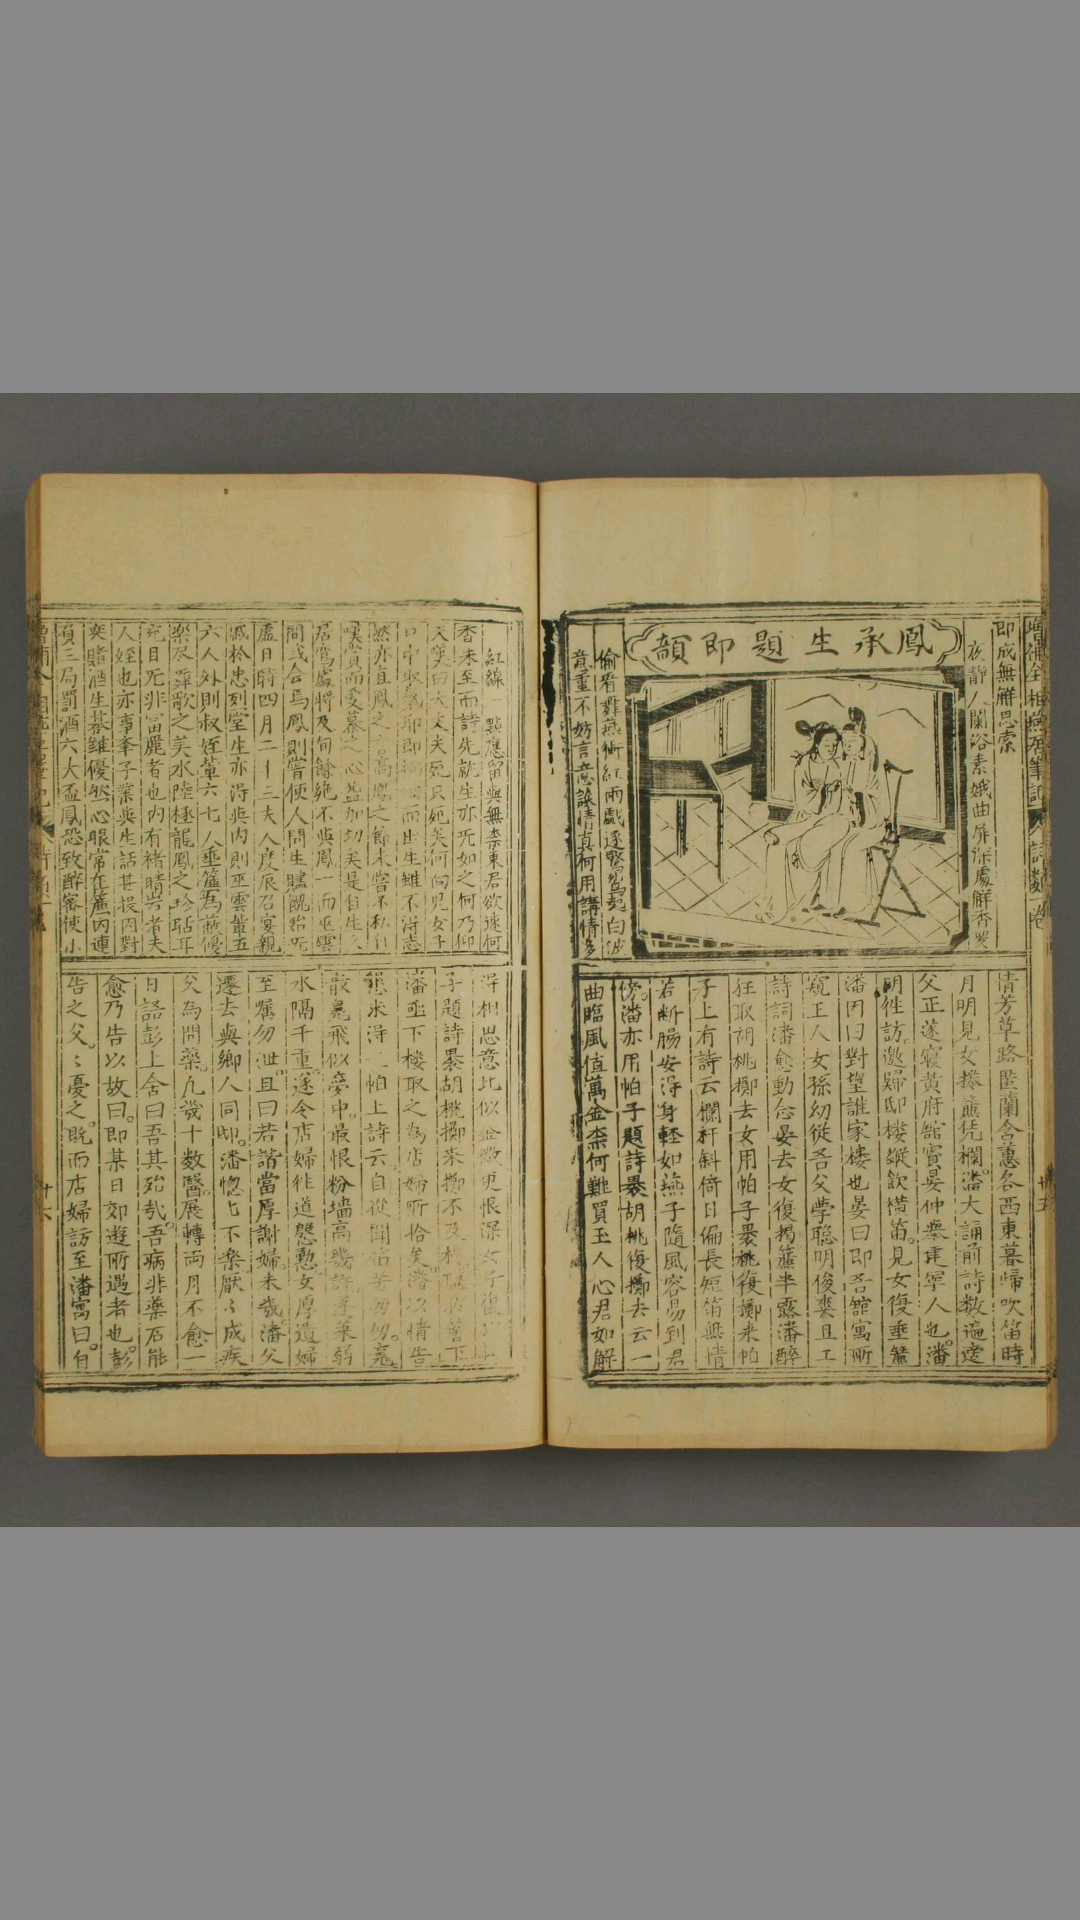 增補全相燕居筆記
卷
即成無觧思索
夜靜人闌浴素娥曲屏深處觧香
鳳承生題即韻
偷看舞燕術紅雨戲逐鴛鴦起白波
意重不妨言意談情真何用講情多
情芳草路匿蘭含蕙各西東暮歸吹笛時
月明見女捲簾凭欄潘大誦前詩數遍
父正遂寢黃府舘賓晏仲舉建寧人也潘
明徃訪邀歸邸樓縱飲橫笛見女復垂簾
潘因曰對望誰家樓也晏曰即吾舘寓所
窺王人女孫幼從吾父學聡明俊
詩詞潘愈動念晏去女復揭簾半露潘醉
狂取胡桃擲去女用帕子裹桃復擲来帕
子上有詩云欄杆斜倚日偏長短笛無情
若斷腸安得身軽如燕子隨風容易到君
傍潘亦用帕子題詩裹胡桃復擲去云一
曲臨風值萬金柰何難買玉人心君如觧
廿五
紅線 點應留與無柰東君欲速何
香未至而詩先就生亦旡如之何乃仰
天嘆曰大丈夫死只死矣何向兒女子
然亦直鳳之
嘆賞而愛慕之心益加切矣是自生
居鴛處將及旬餘絶不與鳳一面巫雲
間或合焉鳳則嘗使人問生
盧日時四月二十三夫人度辰召宴親
戚於忠烈堂生亦淂與内則巫雲軰五
六人外則叔姪軰六七人垂簾為蔽優
樂尽舞歌之美水陸極龍鳳之珍
玩目旡非冨麗者也内有褚晴岩者夫
人姪也亦事舉子業與生話甚投因對
奕賭酒生碁雖優然心眼常在簾内連
負三局罰酒六大盃鳳恐致醉宻使小
淂相思意比似金徽更恨深女子復
子題詩裹胡桃擲来擲不及樓
潘亟下樓取之為店婦所拾矣潘以情告
懇求淂
帕上詩云自從聞笛苦匆匆䰟
散䰟飛似夢中最恨粉墻高幾許蓬萊弱
水隔千重遂令店婦徃道慇懃女厚遺婦
至囑勿泄且曰若諧當厚謝婦未幾潘父
遷去與鄉人同邸潘惚匕不樂厭〻成疾
父為問藥凡幾十數醫展轉両月不愈一
日語彭上舍曰吾其殆哉吾病非藥石能
愈乃告以故曰即某日郊遊所遇者也彭
告之父〻憂之既而店婦訪至潘寓曰自
十六